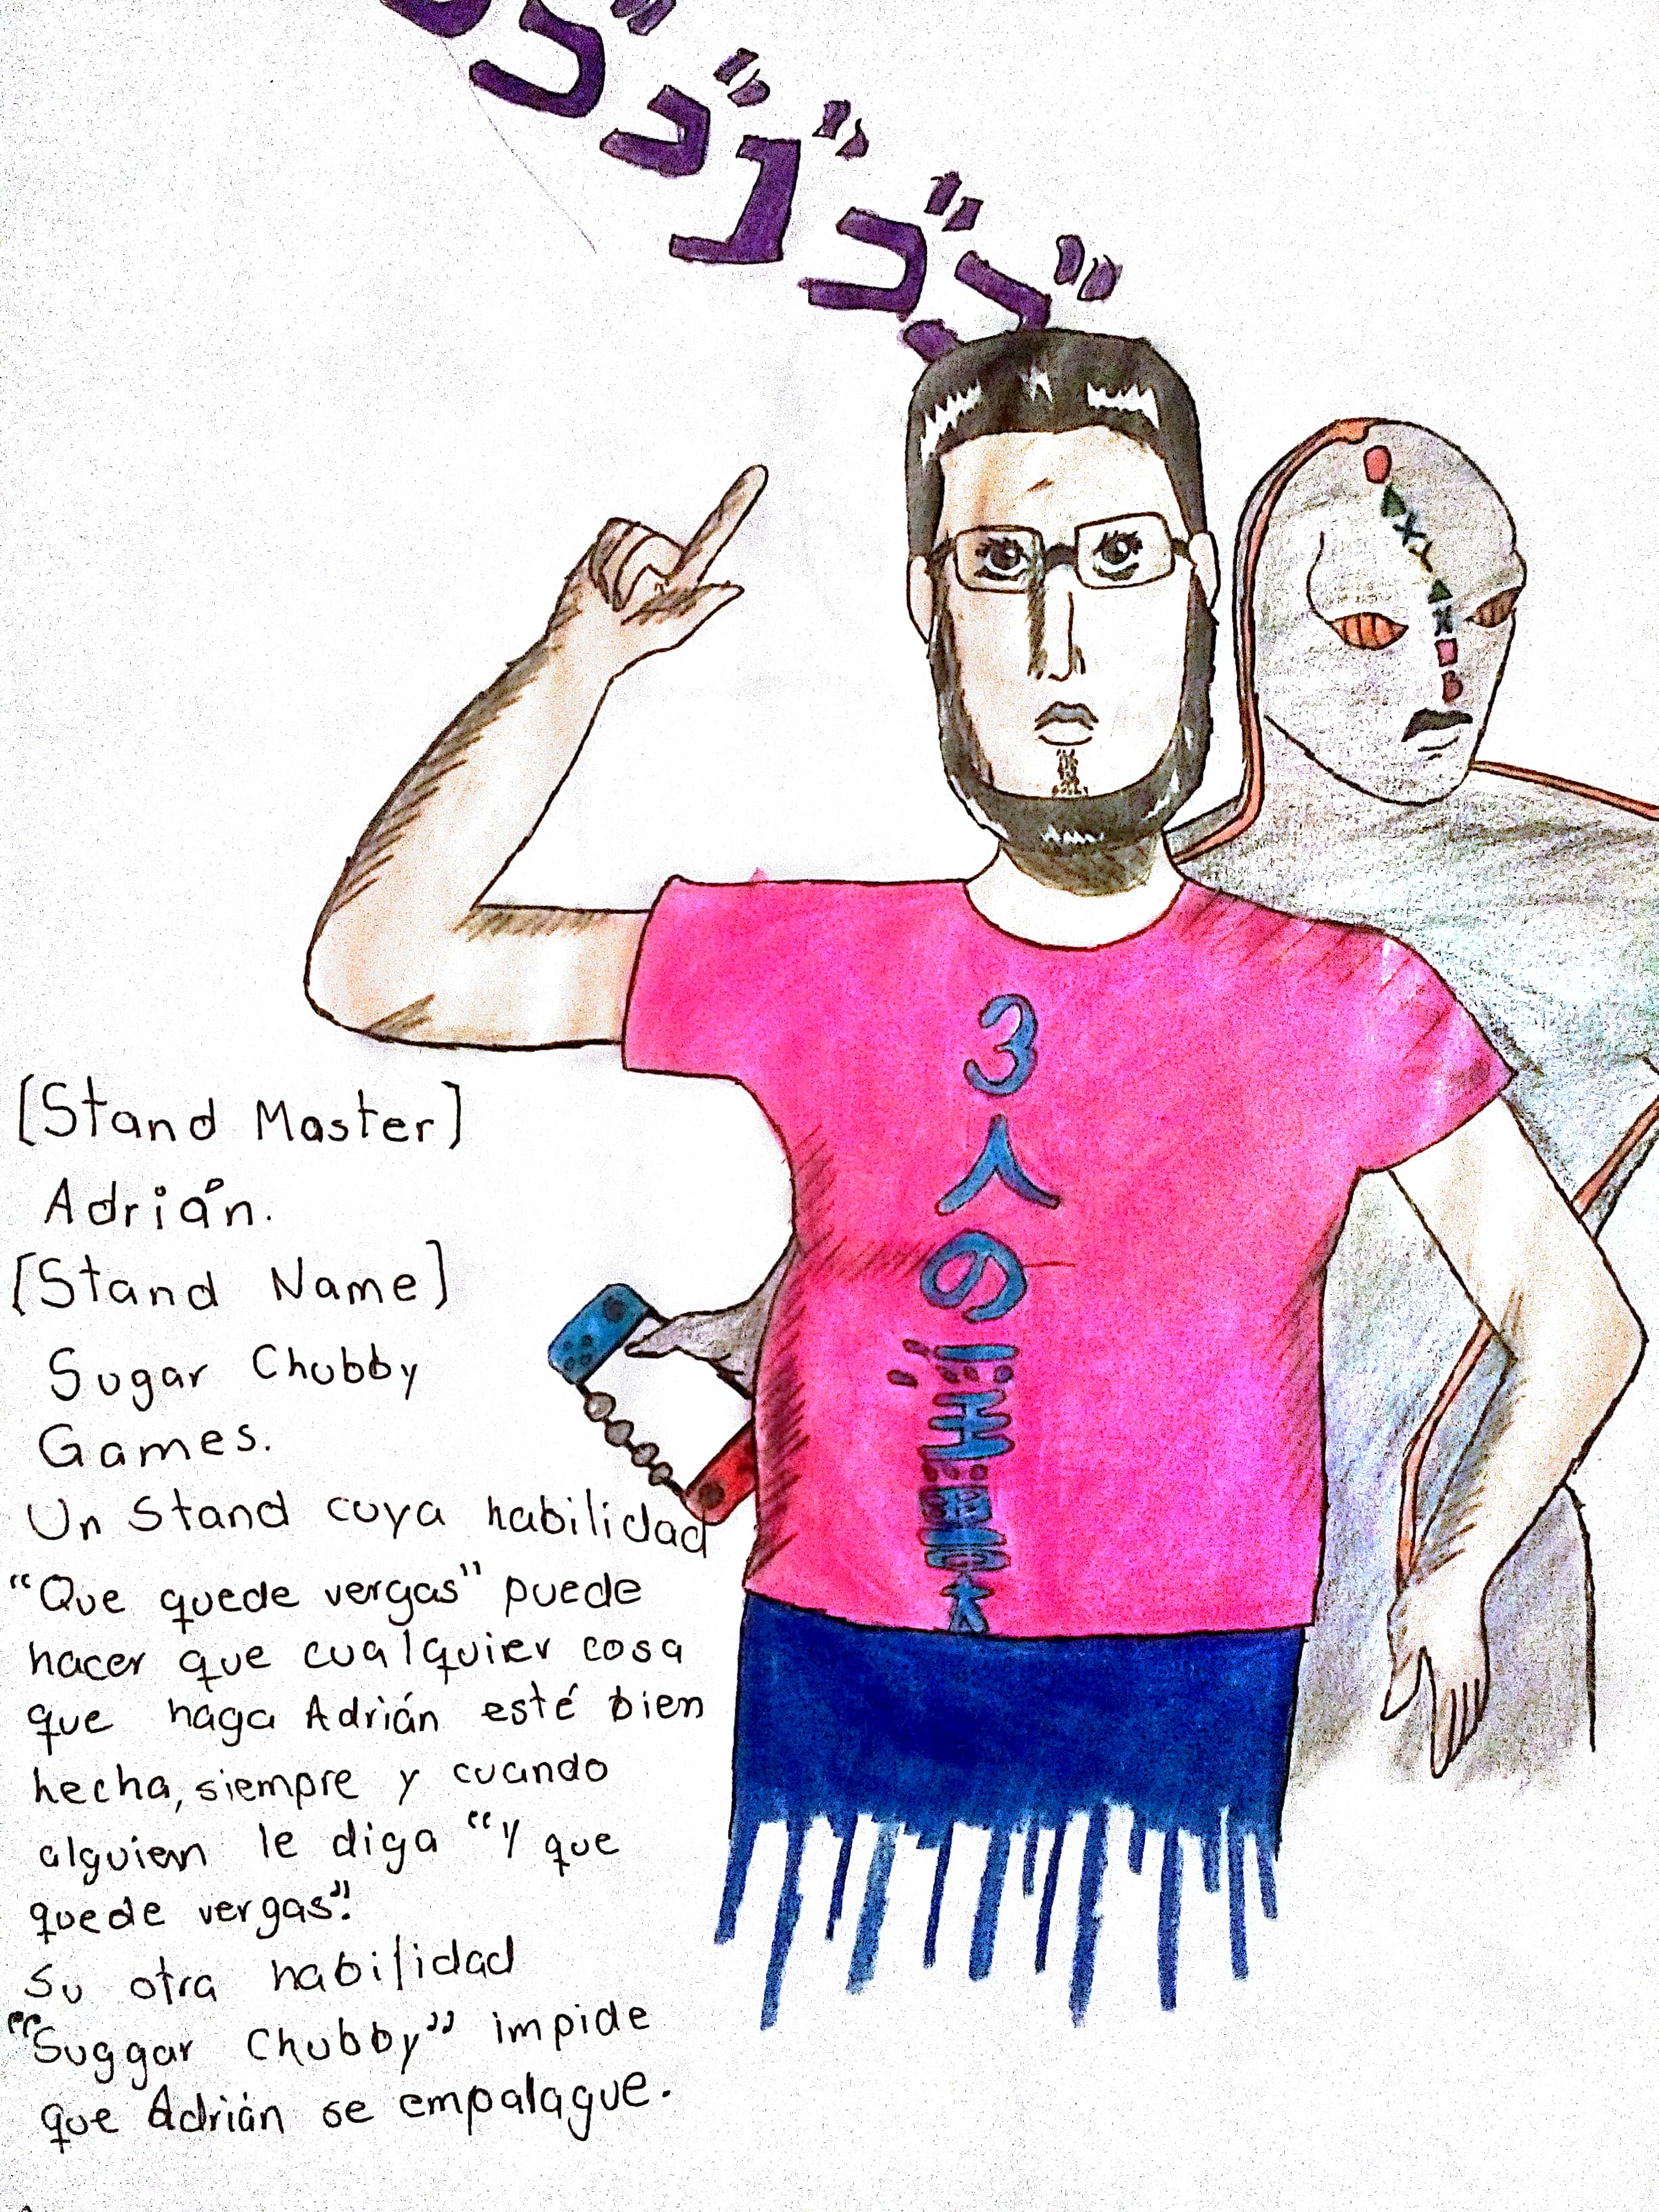 ゴゴゴゴゴゴ
3人の
[Stand Master]
Adrián.
[Stand Name]
Sugar Chubby
Games.
Un Stand cuya habilidad
"Que quede vergas" puede
hacer que cualquier cosa
que haga Adrián esté bien
hecha, siempre y cuando
alguien le diga "Y que
quede vergas".
Su otra habilidad
"Suggar Chubby" impide
que Adrián se empalague.